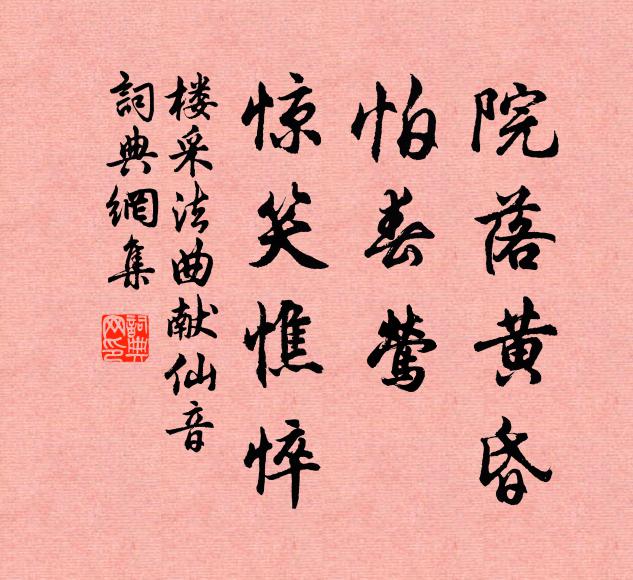 院落黄昏
怕春莺
惊笑憔悴
楼采法曲献仙音
詞典網集
詞典
网印